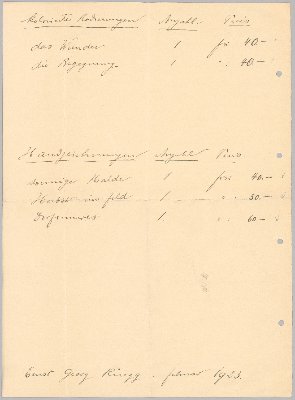 kolorierte Radierungen Anzahl Preis
das Wunder 1 frs 40.–
die Begegnung 1 " 40.–
Handzeichnungen Anzahl Preis
sonnige Halde 1 frs 40.–
Herbst im feld 1 " 50.–
1 " 60.–
Ernst Georg Rüegg. februar 1923.